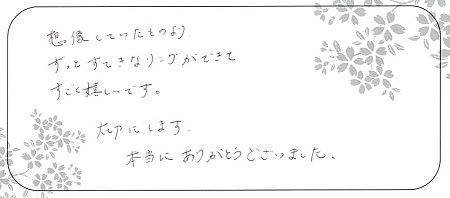 想像していたものより
ずっとすてきなリングができて
すごく嬉しいです。
大切にします。
本当にありがとうございました。